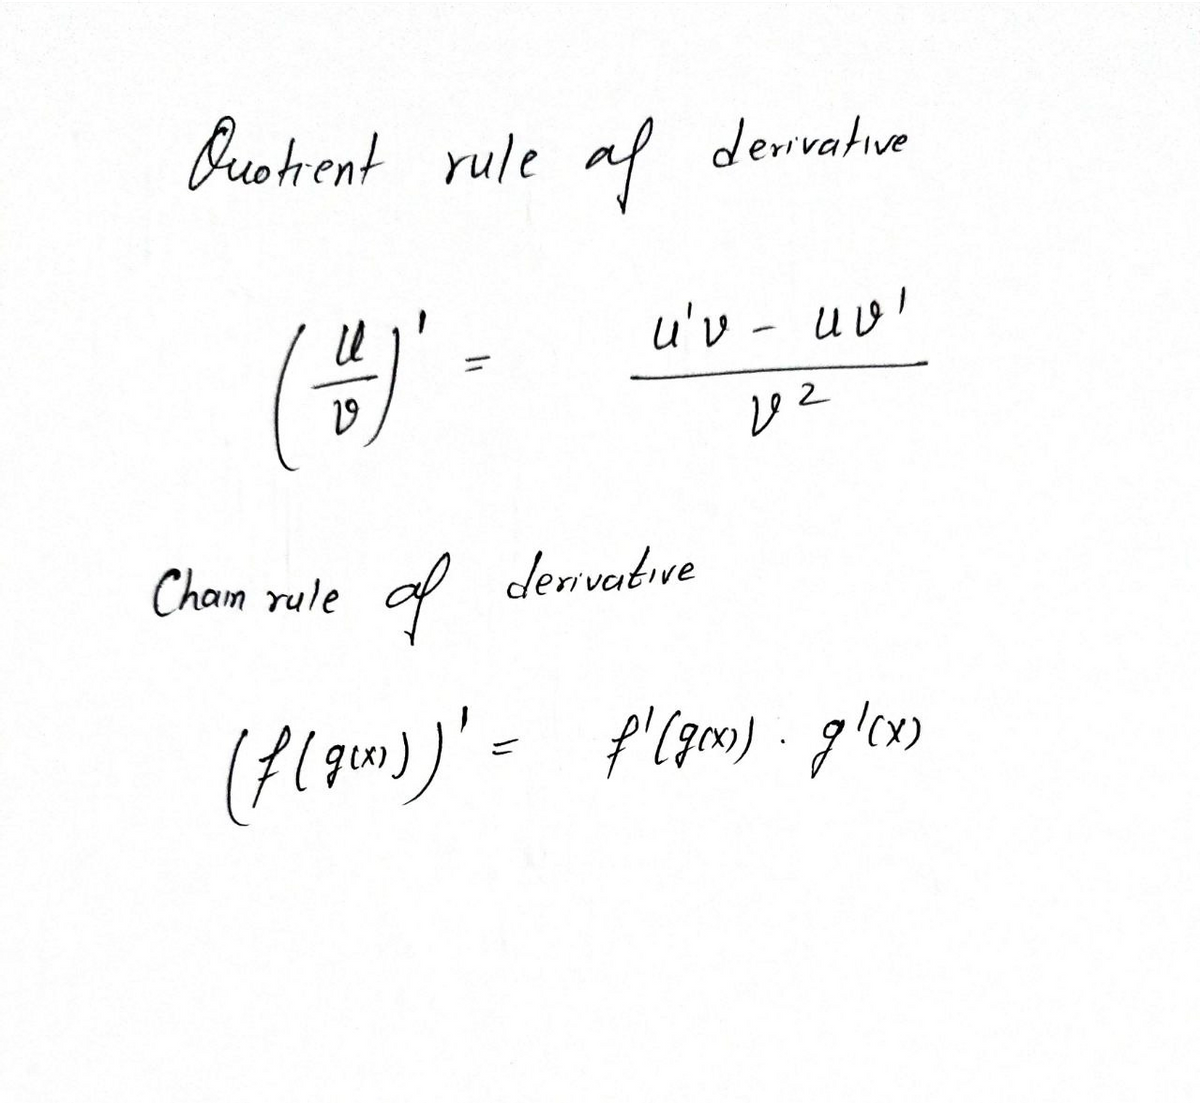 Quotient rule of derivative
(u/v)' = (u'v - uv')/v²
Chain rule of derivative
(f(g(x)))' = f'(g(x)) · g'(x)